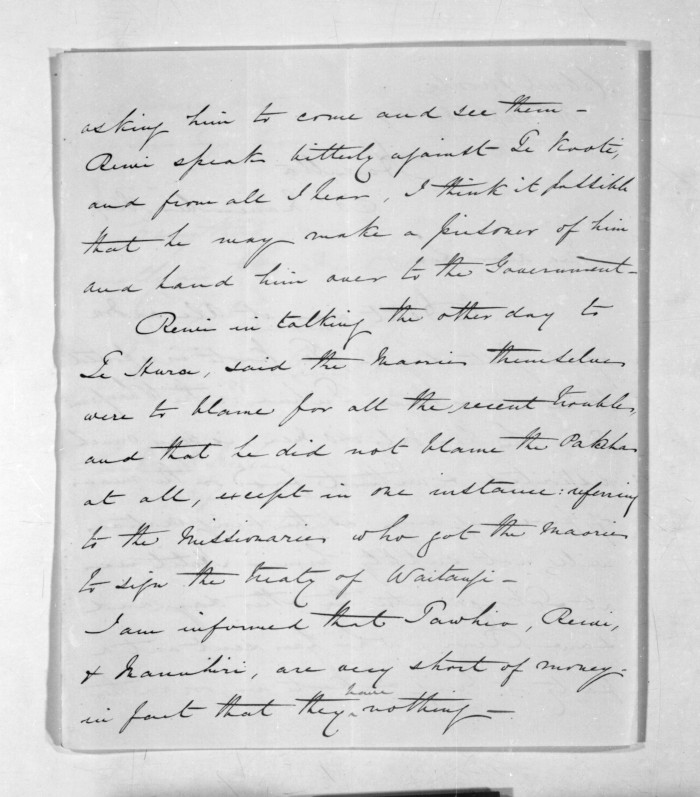 asking him to come and see them -
Rewi speak bitterly against Te Kooti,
and from all I hear, I think it possible
that he may make a prisoner of him
and hand him over to the Government -
Rewi in talking the other day to
Te Hura, said the Maories themselves
were to blame for all the recent troubles,
and that he did not blame the Pakeha
at all, except in one instance: referring
to the Missionaries who got the Maories
to sign the treaty of Waitangi -
I am informed that Tawhio, Rewi,
& Manuhiri, are very short of money -
in fact that they have nothing -